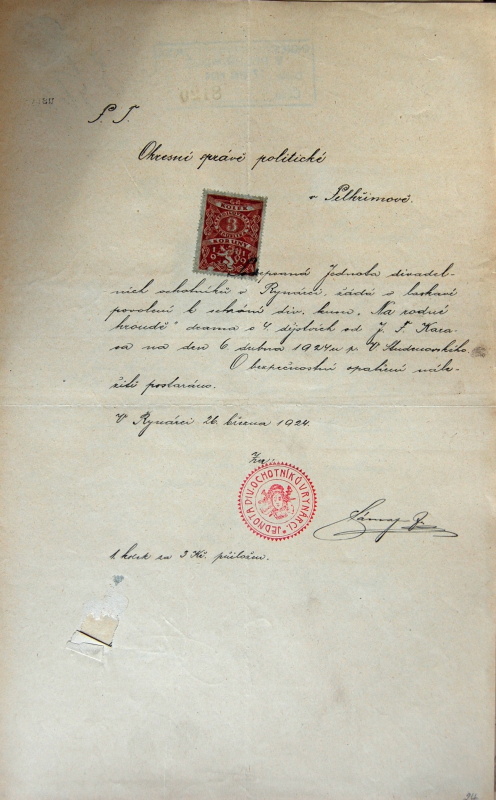 8120
P. T.
Okresní správě politické
v Pelhřimově.
KOLEK
3
KORUNY
1919
Jednota divadel-
ních ochotníků v Rynárci, žádá o laskavé
povolení k sehrání div. kusu „Na rodné
hroudě" drama o 4 dějstvích od J. F. Kara
sa na den 6 dubna 1924 u p. V.
O bezpečnostní opatření nále-
žitě postaráno.
V Rynárci 26. března 1924.
Za:
JEDNOTA DIV. OCHOTNÍKŮ V RYNÁRCI.
1 kolek za 3 Kč. přiložen.